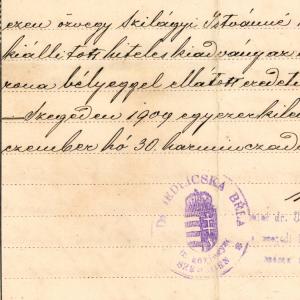 ezen özvegy Szilágyi Istvánné
kiállított hiteles kiadvány az
rona bélyeggel ellátott eredeti
Szegeden 1909 egyezerkilen
czember hó 30 harminczadi
DR JEDLICSKA BÉLA
KIR. KÖZJEGYZŐ
SZEGEDEN
dr.